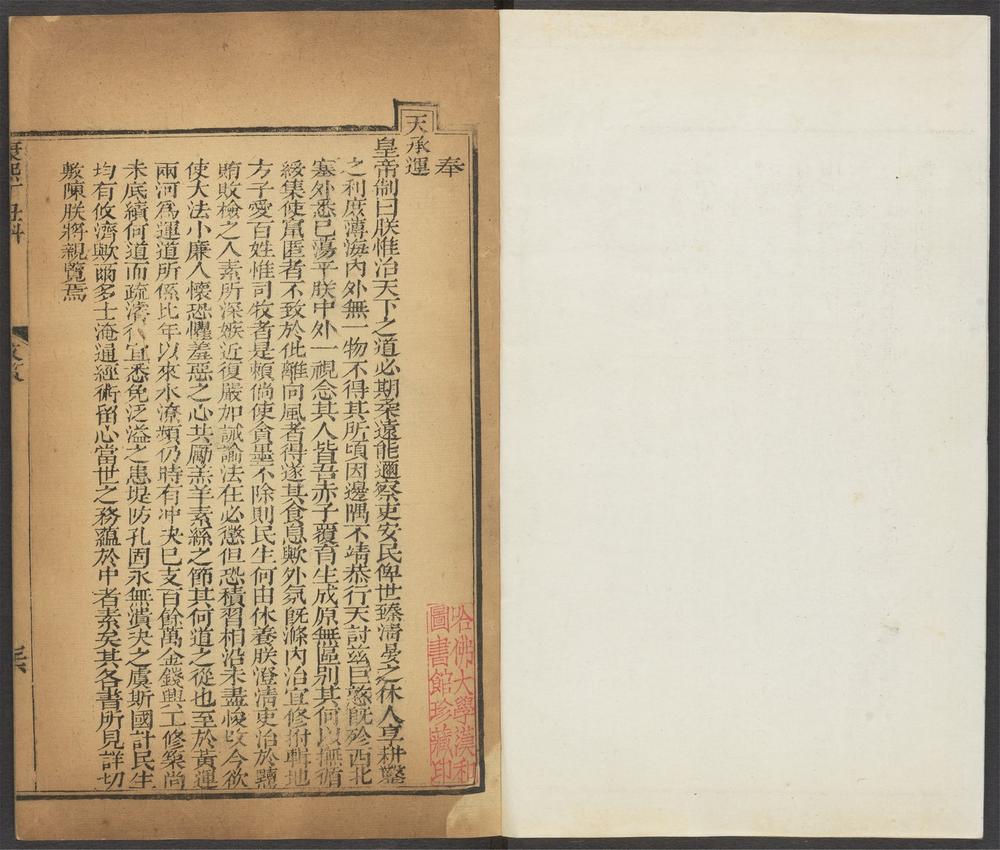 奉
天承運
皇帝制曰朕惟治天下之道必期柔遠能邇察吏安民俾世臻清晏之休人享耕鑿
之利庶薄海內外無一物不得其所頃因邊隅不靖恭行天討茲巨憝旣殄西北
塞外悉已蕩平朕中外一視念其人皆吾赤子覆育生成原無區別其何以撫循
綏集使竄匿者不致於仳離向風者得遂其食息歟外氛旣滌內治宜修拊輯地
方子愛百姓惟司牧者是賴倘使貪墨不除則民生何由休養朕澄清吏治於黷
賄敗檢之人素所深嫉近復嚴加誡諭法在必懲但恐積習相沿未盡悛改今欲
使大法小廉人懷恐懼羞惡之心共勵羔羊素絲之節其何道之從也至於黃運
兩河爲運道所係比年以來水潦頻仍時有冲决已支百餘萬金錢興工修築尚
未底績何道而疏濬得宜悉免泛溢之患堤防孔固永無潰决之虞斯國計民生
均有攸濟歟爾多士淹通經術留心當世之務蘊於中者素矣其各書所見詳切
敷陳朕將親覽焉
丑科
哈佛大學漢和
圖書館珍藏印